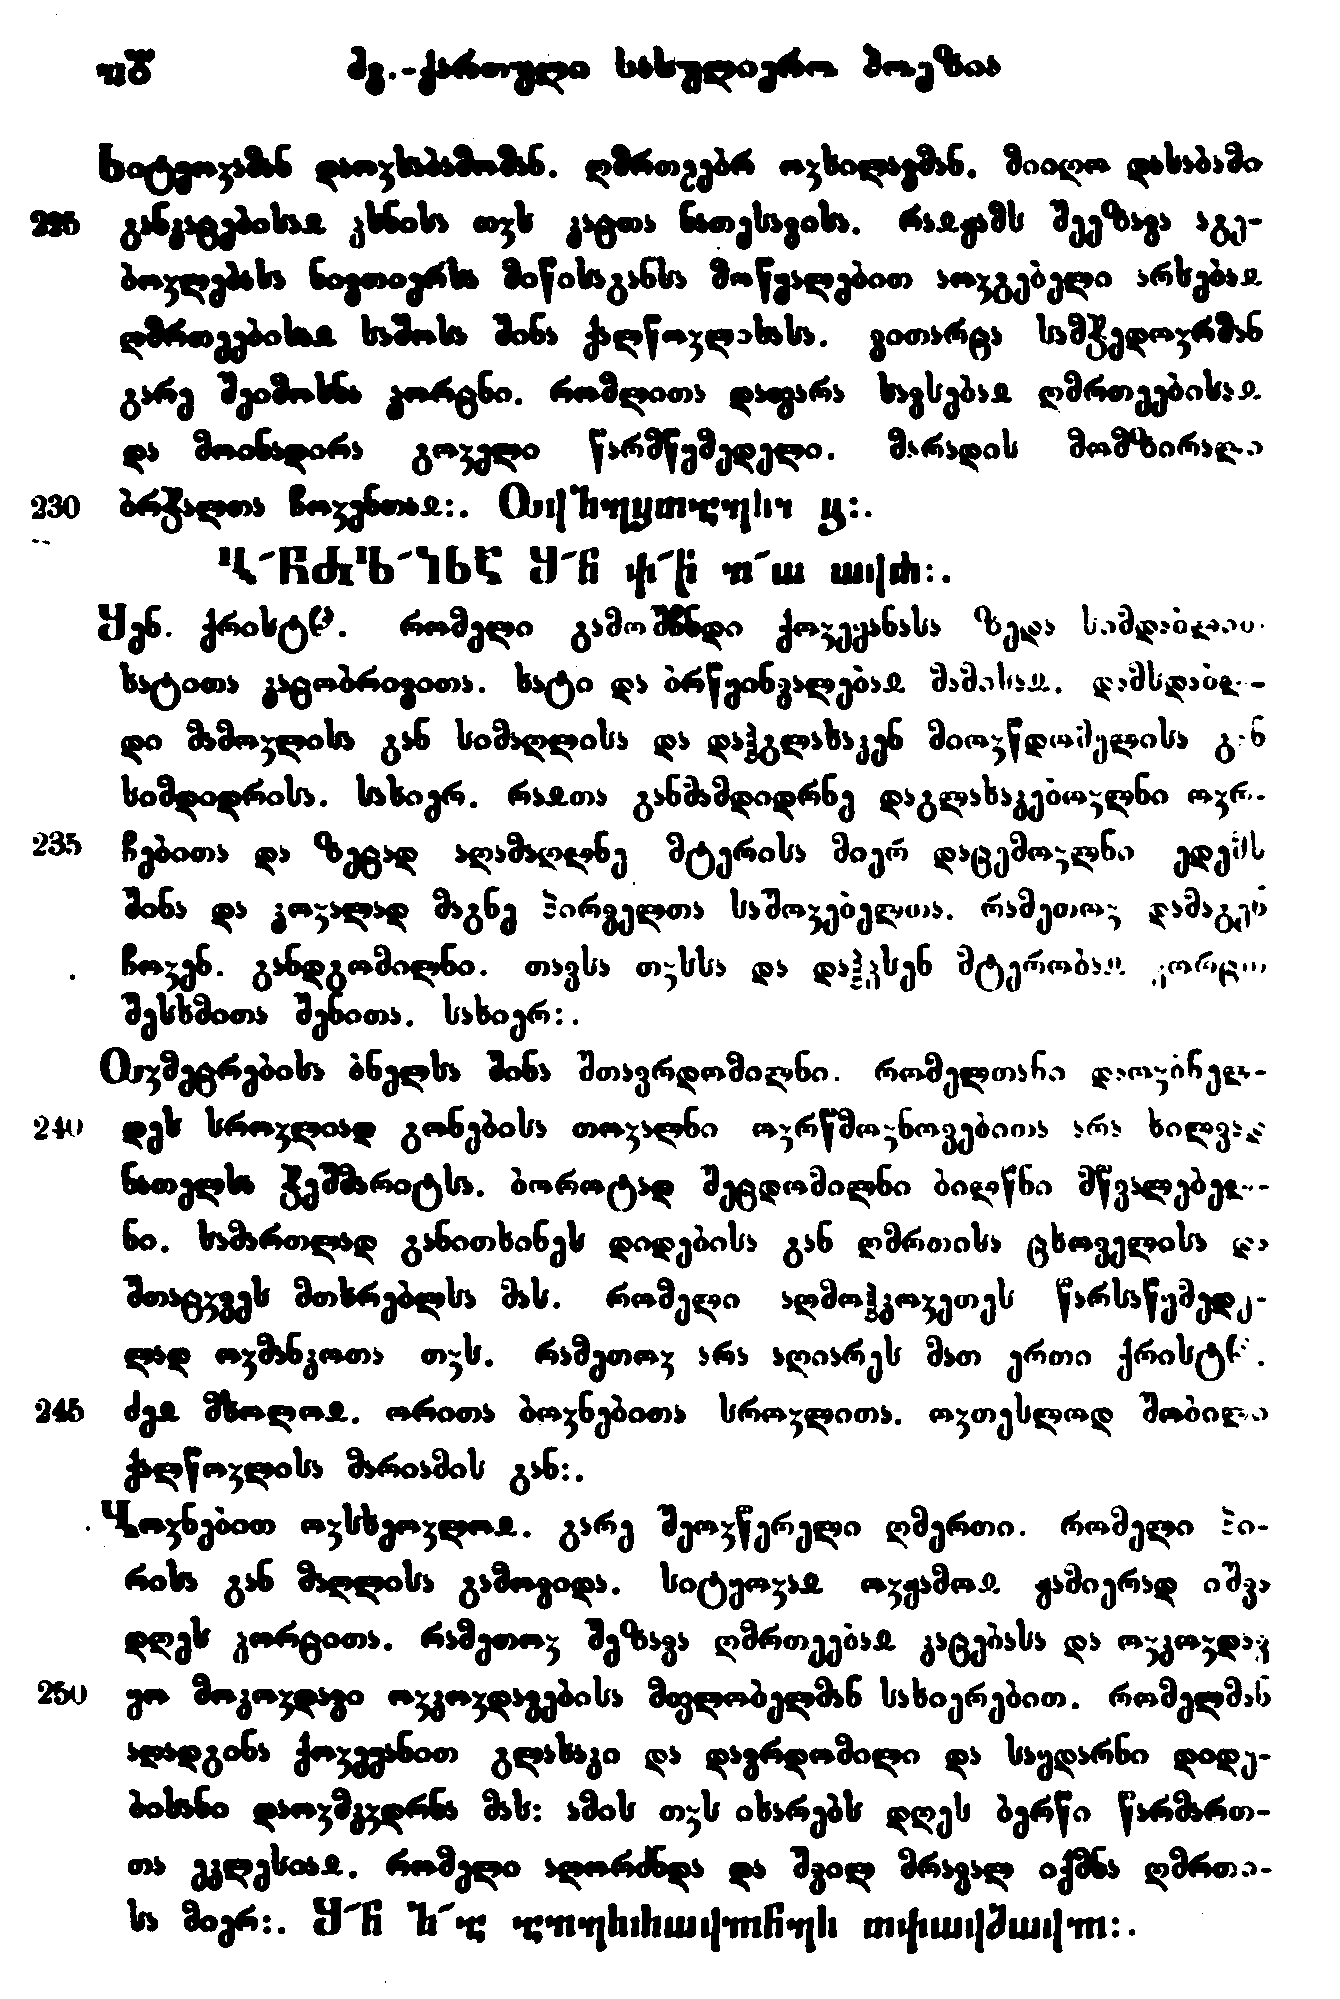 ძვ.-ქართული სასულიერო პოეზია
სიტყოჳამან დაოჳსაბამომან. ღმრთეებრ ოჳხილავმან. მიიღო დასაბამი
225 განკაცებისაჲ ჴსნისა თჳს კაცთა ნათესავისა. რაჲჟამს შეეზავა აგე-
ბოჳლებასა ნივთიერსა მიწისაგანსა მოწყალებით აოჳგებელი არსებაჲ
ღმრთეებისაჲ საშოსა შინა ქალწოჳლისასა. ვითარცა სამჭედოჳრმან
გარე შეიმოსნა ჴორცნი. რომლითა დაფარა სავსებაჲ ღმრთეებისაჲ
და მოინადირა გოჳელი წარმწყმედელი. მარადის მომზირალი
230 ბრჭალთა ჩოჳენთაჲ:.
ყენ. ქრისტჱ. რომელი გამოშჩნდი ქოჳეყანასა ზედა
ხატითა კაცობრივითა. ხატი და ბრწყინვალებაჲ მამისაჲ.
დი მამოჳლისა გან სიმაღლისა და დაჰგლახაკენ მიოჳწდომელისა გან
სიმდიდრისა. სახიერ. რაჲთა განმამდიდრნე დაგლახაკებოჳლნი ოჳრ-
235 ჩებითა და ზეცად აღამაღლნე მტერისა მიერ დაცემოჳლნი ედემს
შინა და კოჳალად მაგნე პირველთა საშოჳებელთა. რამეთოჳ დამაგენ
ჩოჳენ. განდგომილნი. თავსა თჳსსა და დაჰჴსენ მტერობაჲ ჴორცთა
შესხმითა შენითა. სახიერ:.
Ⴍჳმეცრებისა ბნელსა შინა შთავრდომილნი. რომელთანი დაოჳბნელ-
240 დეს სროჳლიად გონებისა თოჳალნი ოჳრწმოჳნოვებითა არა ხილვად
ნათელსა ჭეშმარიტსა. ბოროტად შეცდომილნი ბილწნი მწვალებელ-
ნი. სამართლად განითხინეს დიდებისა გან ღმრთისა ცხოველისა და
შთაცჳვეს მთხრებლსა მას. რომელი აღმოჰკოჳეთეს წარსაწყმედე-
ლად ოჳმანკოთა თჳს. რამეთოჳ არა აღიარეს მათ ერთი ქრისტჱ.
245 ძეჲ მხოლოჲ. ორითა ბოჳნებითა სროჳლითა. ოჳთესლოდ შობილი
ქალწოჳლისა მარიამის გან:.
Ⴁოჳნებით ოჳსხეოჳლოჲ. გარე შეოჳწერელი ღმერთი. რომელი პი-
რისა გან მაღლისა გამოვიდა. სიტყოჳაჲ ოჳჟამოჲ ჟამიერად იშვა
დღეს ჴორცითა. რამეთოჳ შეზავა ღმრთეებაჲ კაცებასა და ოჳკოჳდავ
250 ყო მოკოჳდავი ოჳკოჳდავებისა მფლობელმან სახიერებით. რომელმან
აღადგინა ქოჳეყანით გლახაკი და დავრდომილი და საყდარნი დიდე-
ბისანი დაოჳმკჳდრნა მას: ამის თჳს იხარებს დღეს ბერწი წარმართ-
თა ეკლესიაჲ. რომელი აღორძნდა და შვილ მრავალ იქმნა ღმრთი-
სა მიერ:.